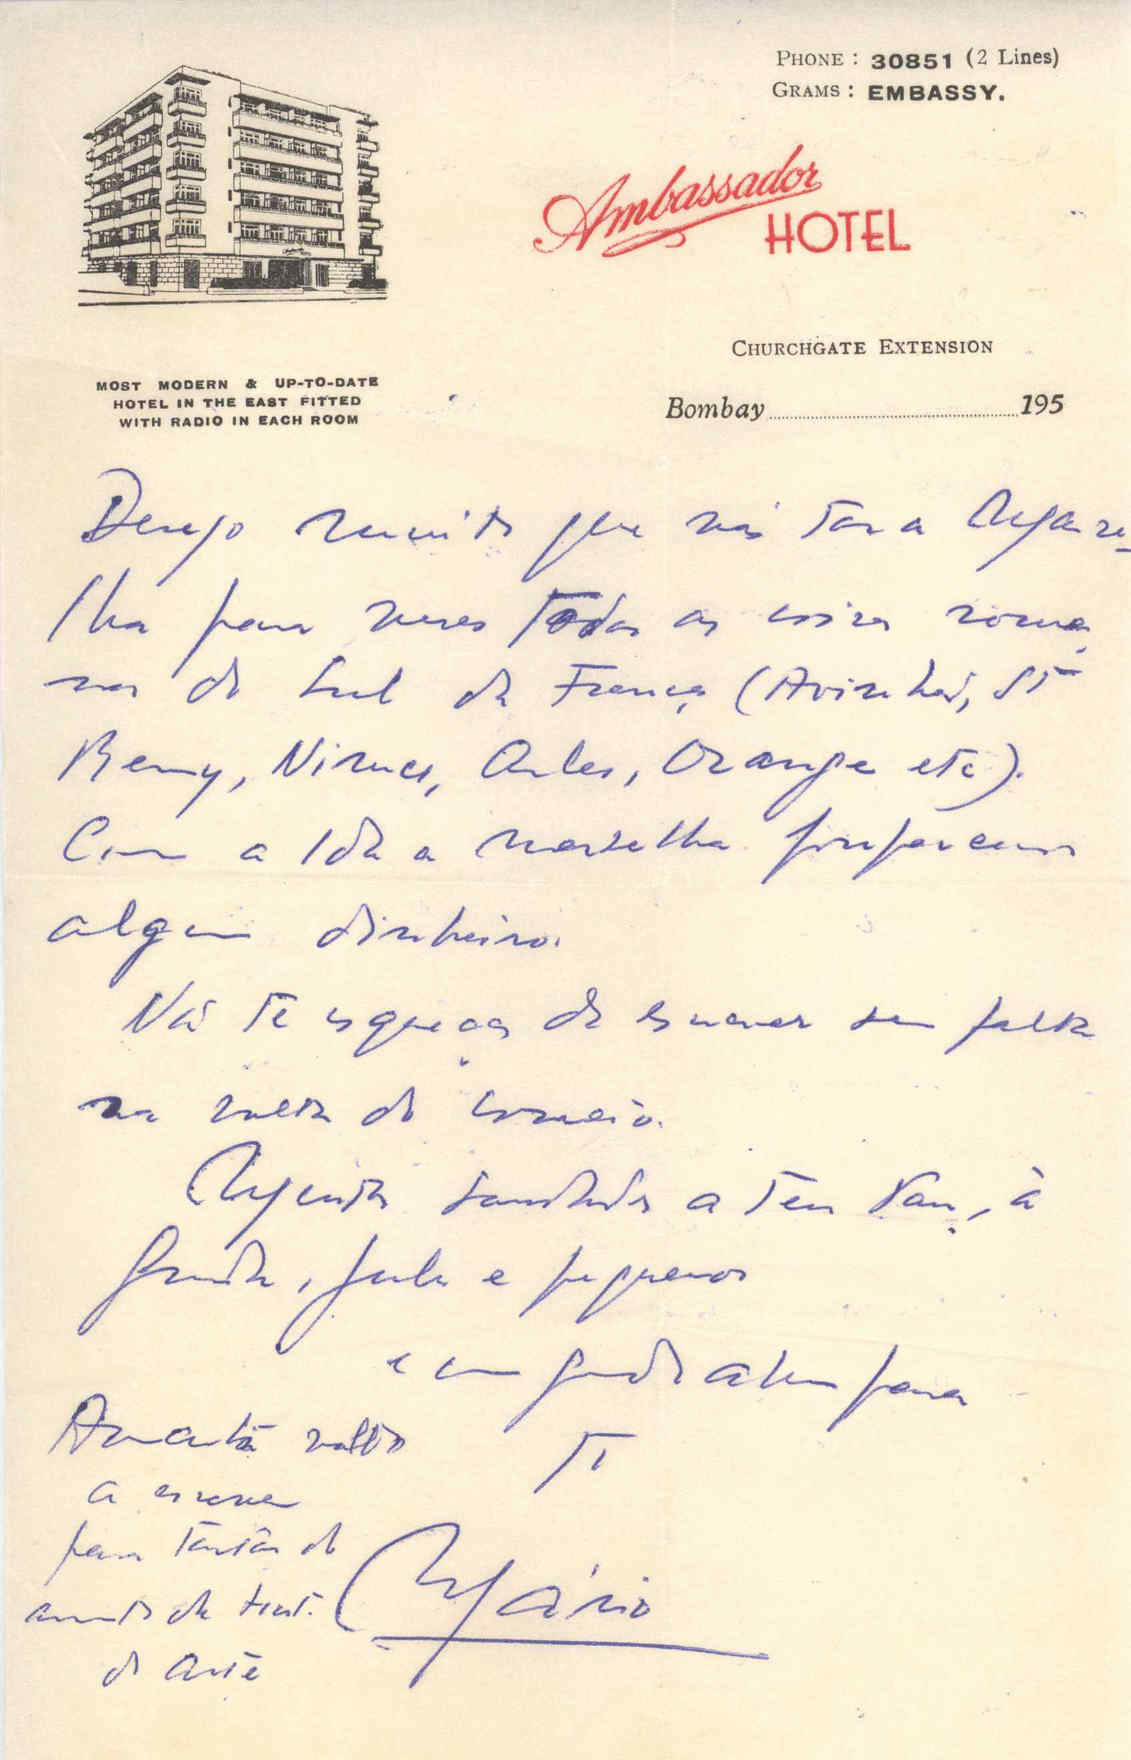 PHONE : 30851 (2 Lines)
GRAMS : EMBASSY.
Ambassador
HOTEL
CHURCHGATE EXTENSION
MOST MODERN & UP-TO-DATE
HOTEL IN THE EAST FITTED
WITH RADIO IN EACH ROOM
Bombay 195
Desejo muito que vás a Marse-
lha para veres todas as coisas roma-
nas do Sul da França (Avinhão, St
Remy, Nimes, Arles, Orange etc).
Com a ida a Marselha poupavam
algum dinheiro.
Não te esqueças de escrever sem falta
na volta do correio.
Muitas saudades a teu Pai, à
e pequenos
e um grande abraço para
Ti
Mário
Amanhã volto
a escrever
para tratar do
assunto da Hist.
da Arte